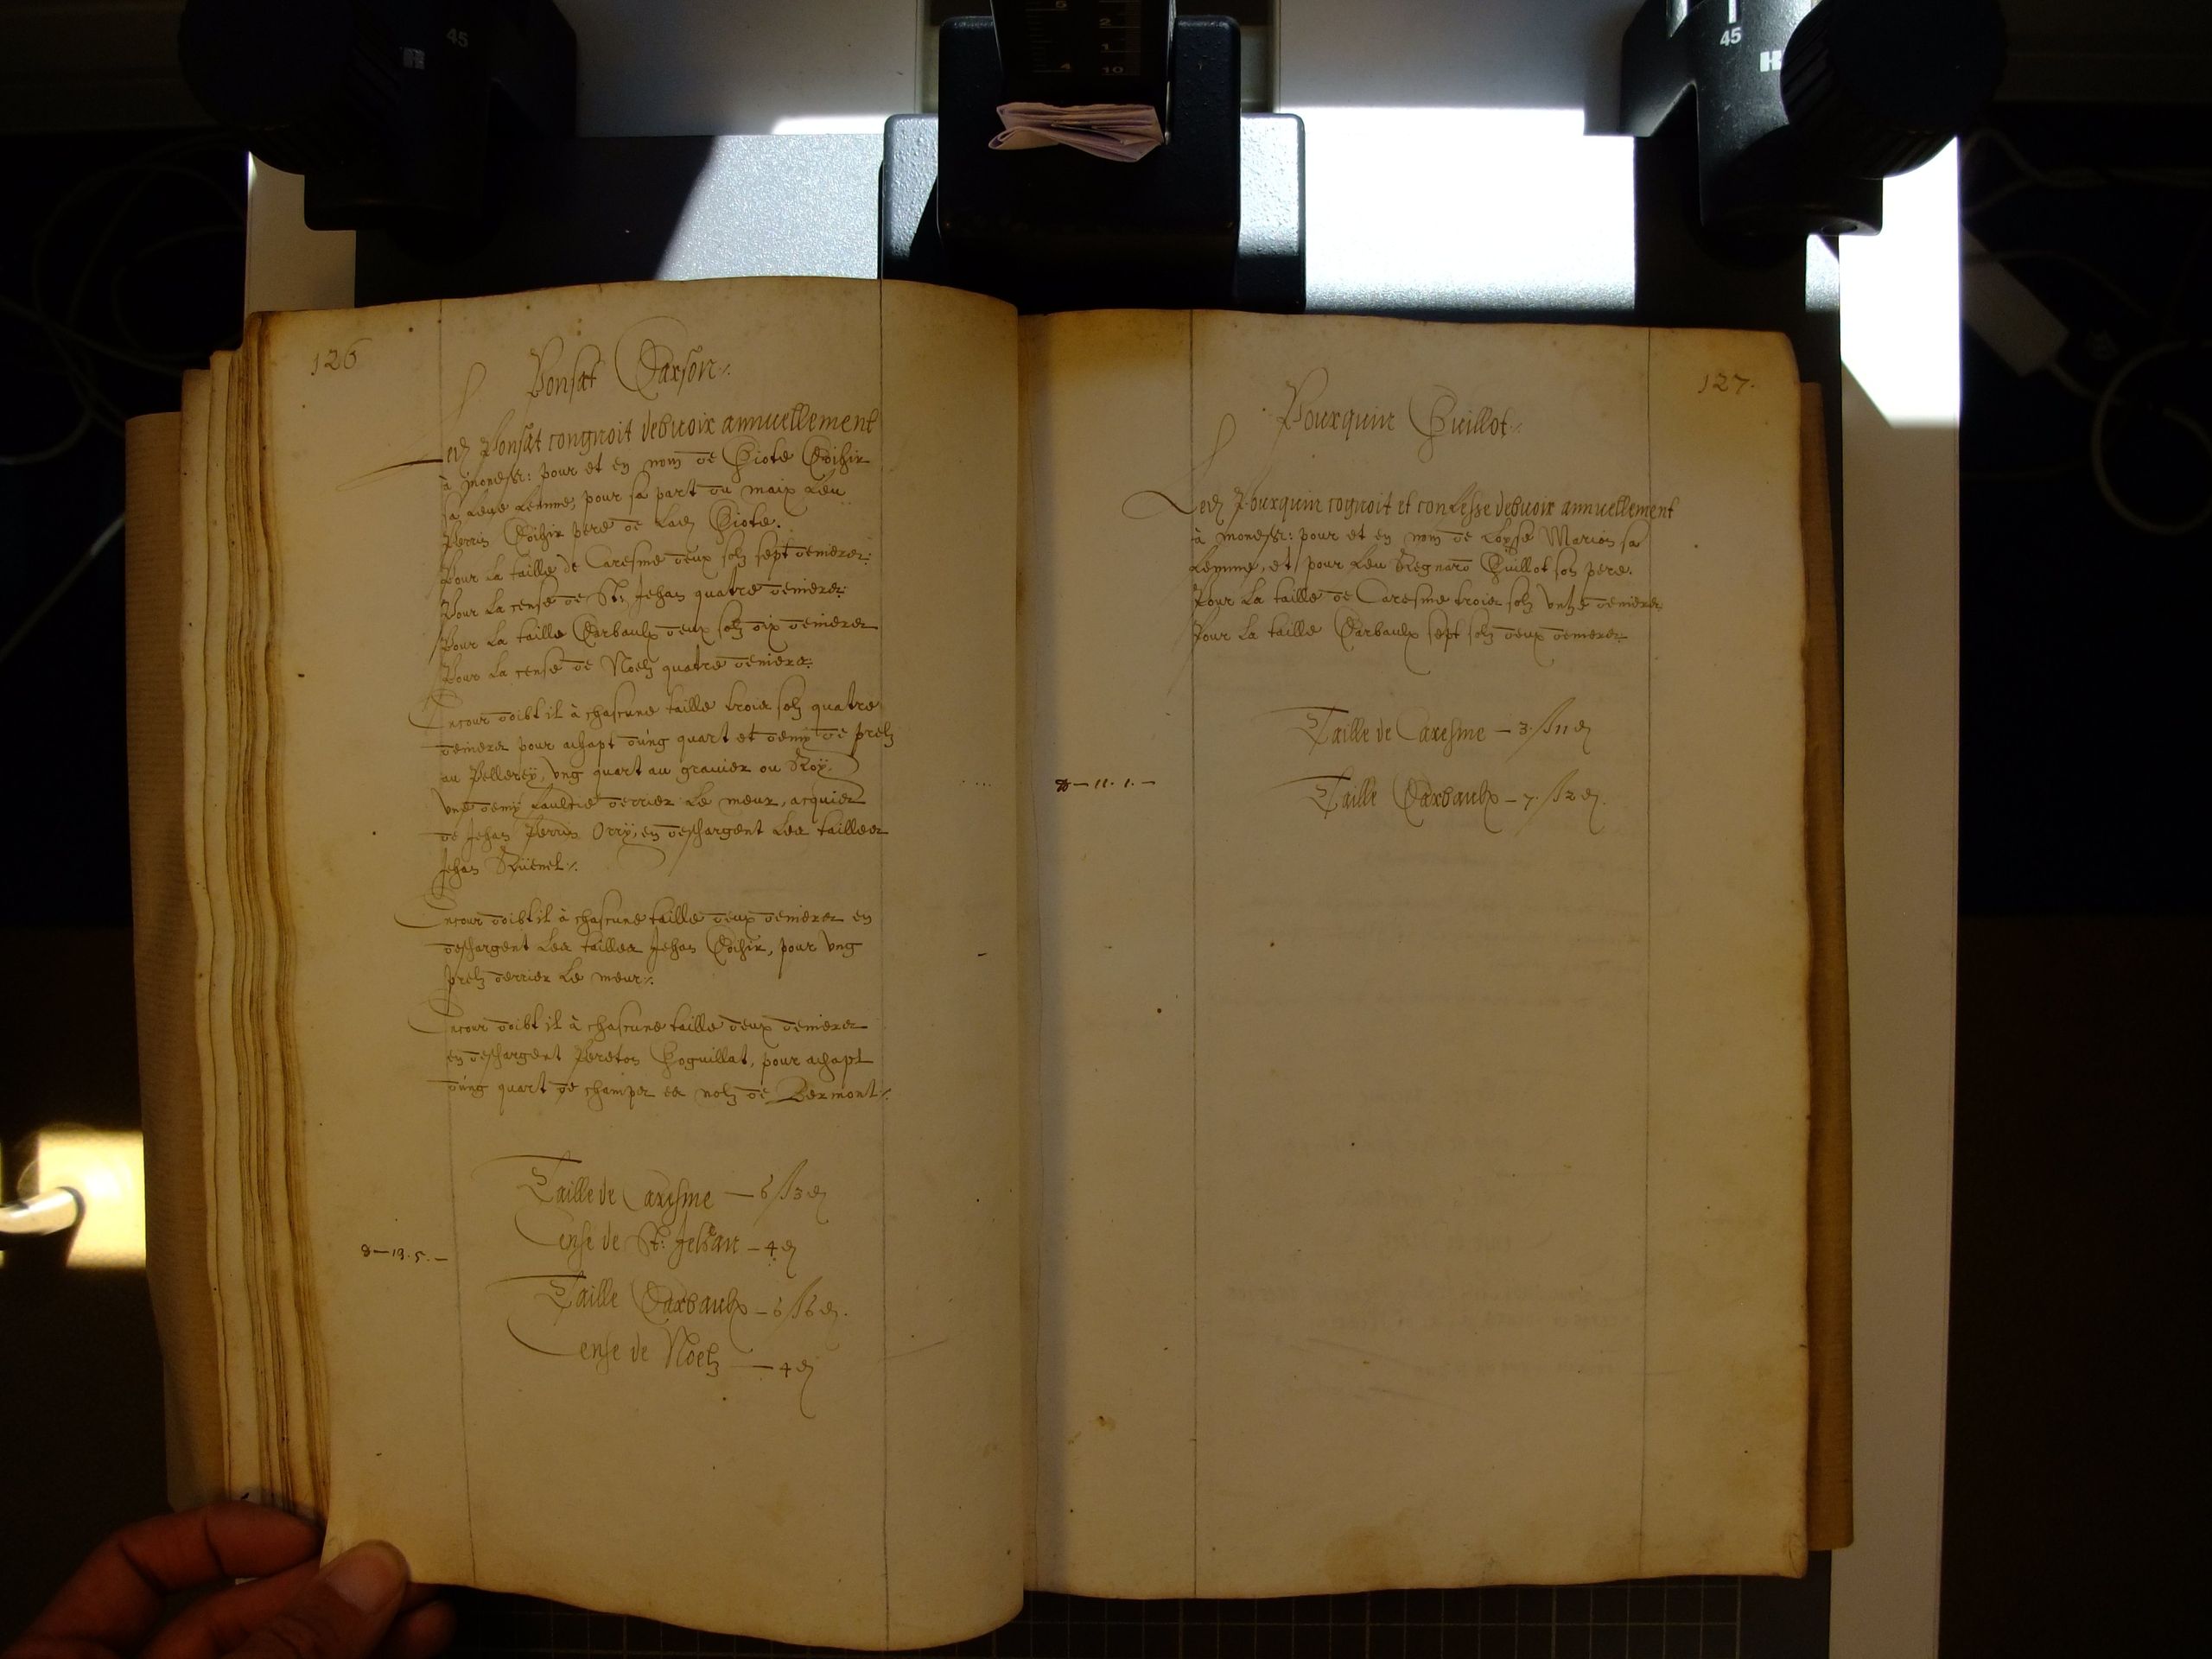 126
Ponsat Carson
Led Ponsat congnoit debuoir annuellement
à mondsr: pour et en nom de Giote
sa feue femme, pour sa part du maix feu
Perrin pere de lad Giote.
Pour la taille de Caresme deux solz sept deniers:
Pour la cense de St: Jehan quatre deniers:
Pour la taille Darbaulx deux solz dix deniers
Pour la cense de Noelz quatre deniers:
Encour doibt il à chascune taille trois solz quatre
deniers pour achapt dung quart et demy de prelz
au Pellerey, vng quart au grauier ou Roy.
vne demy faultie derrier le meur, acquier
de Jehan Perrin Orry, en deschargent les tailles
Jehan
Encour doibt il à chascune taille deux deniers en
deschargent les tailles Jehan pour vng
prelz derrier le meur
Encour doibt il à chascune taille deux deniers
en deschargent Pereton Goguillat, pour achapt
dung quart de champs es nolz de Bermont
Taille de Caresme — 6 ß 3 d
Cense de St: Jehan — 4 d
8 — 13. 5. —
Taille Darbaulx — 6 ß 6 d.
Cense de Noelz — 4 d
127.
Pourquin Guillot
Led Pourquin cognoit et confesse debuoir annuellement
à mondsr: pour et en nom de Loyse Marion sa
femme, et pour feu Regnard Guillot son pere.
Pour la taille de Caresme trois solz vnze deniers
Pour la taille Darbaulx sept solz deux deniers
Taille de Caresme — 3 ß 11 d
8 — 11. 1. —
Taille Darbaulx — 7 ß 2 d.
45
45